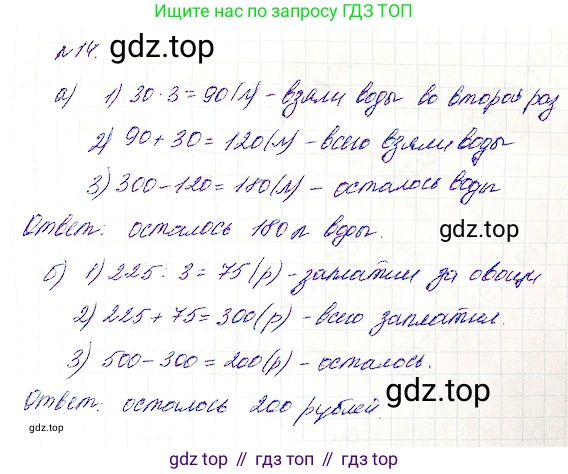 Ищите нас по запросу ГДЗ ТОП
gdz.top
№14.
а) 1) 30 · 3 = 90 (л) - взяли воды во второй раз
2) 90 + 30 = 120 (л) - всего взяли воды
3) 300 - 120 = 180 (л) - осталось воды
Ответ: осталось 180 л воды.
gdz.top
б) 1) 225 : 3 = 75 (р) - заплатили за овощи
2) 225 + 75 = 300 (р) - всего заплатил.
3) 500 - 300 = 200 (р) - осталось.
gdz.top
Ответ: осталось 200 рублей.
gdz.top
gdz.top // гдз топ // gdz.top